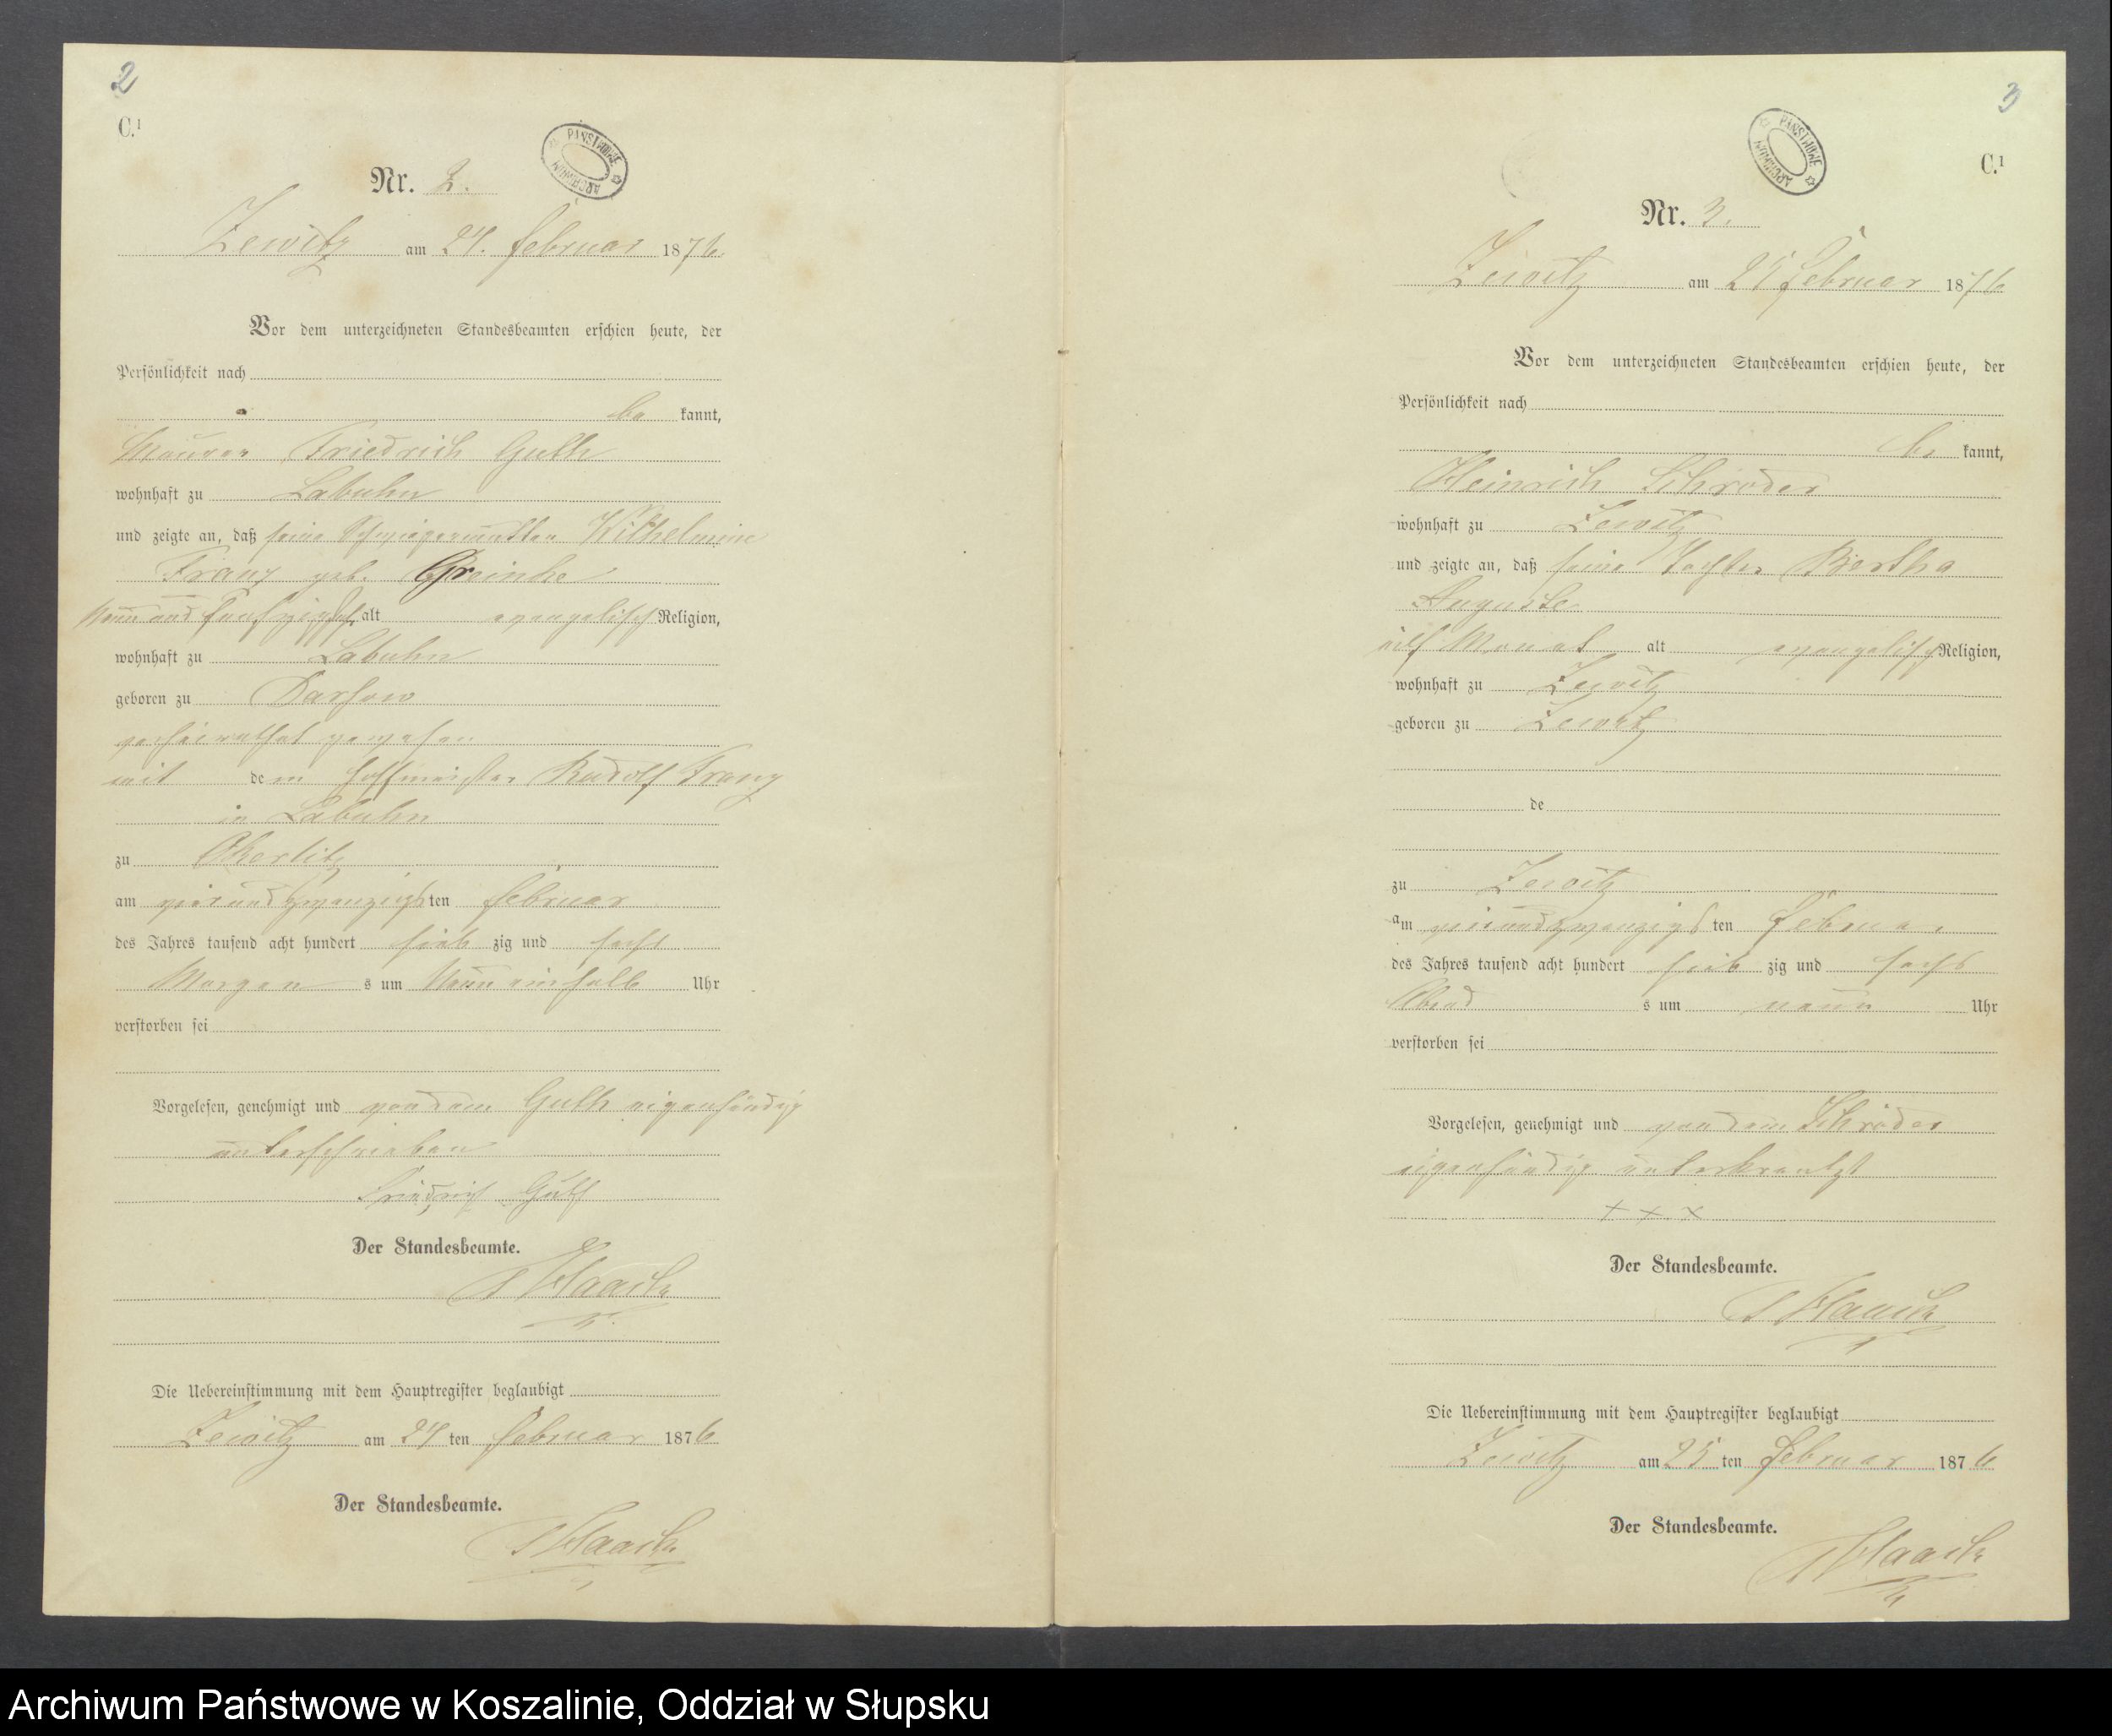 2
C.¹
PAŃSTWOWE ARCHIWUM
Nr. 2.
Zewitz am 24. Februar 1876
Vor dem unterzeichneten Standesbeamten erschien heute, der
Persönlichkeit nach
be kannt,
Maurer Friedrich Guth
wohnhaft zu Labuhn
und zeigte an, daß seine Schwiegermutter Wilhelmine
Franz geb. Greinke
alt evangelisch Religion,
wohnhaft zu Labuhn
geboren zu Darsow
verheirathet gewesen
mit dem Hoffmeister Rudolf Franz
in Labuhn
zu
am vierundzwanzigsten Februar
des Jahres tausend acht hundert sieb zig und sechs
Morgen s um Neun einhalb Uhr
verstorben sei
Vorgelesen, genehmigt und von dem Guth eigenhändig
unterschrieben
Friedrich Guth
Der Standesbeamte.
Haack
Die Uebereinstimmung mit dem Hauptregister beglaubigt
Zewitz am 24 ten Februar 1876
Der Standesbeamte.
Haack
3
C.¹
PAŃSTWOWE ARCHIWUM
Nr. 3.
Zewitz am 25 Februar 1876
Vor dem unterzeichneten Standesbeamten erschien heute, der
Persönlichkeit nach
be kannt,
Heinrich Schröder
wohnhaft zu Zewitz
und zeigte an, daß seine Tochter Bertha
Auguste
elf Monat alt evangelisch Religion,
wohnhaft zu Zewitz
geboren zu Zewitz
de
zu Zewitz
am vierundzwanzigsten Februar
des Jahres tausend acht hundert sieb zig und sechs
Abend s um neun Uhr
verstorben sei
Vorgelesen, genehmigt und von dem Schröder
eigenhändig unterkreutzt
+ + x
Der Standesbeamte.
Haack
Die Uebereinstimmung mit dem Hauptregister beglaubigt
Zewitz am 25 ten Februar 1876
Der Standesbeamte.
Haack
Archiwum Państwowe w Koszalinie, Oddział w Słupsku